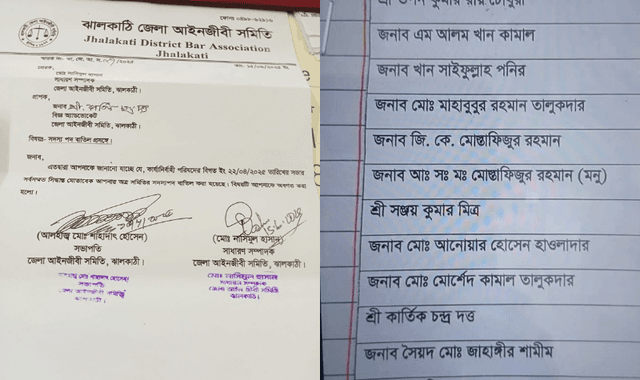 ঝালকাঠি জেলা আইনজীবী সমিতি
Jhalakati District Bar Association
Jhalakati
সাধারণ সম্পাদক
জেলা আইনজীবী সমিতি, ঝালকাঠি।
প্রাপক,
জনাব
বিজ্ঞ অ্যাডভোকেট
জেলা আইনজীবী সমিতি, ঝালকাঠি।
বিষয়ঃ- সদস্য পদ বাতিল প্রসঙ্গে।
জনাব,
এতদ্বারা আপনাকে জানানো যাচ্ছে যে, কার্যনির্বাহী পরিষদের বিগত ইং ২২/০৪/২০২৫ তারিখের সভার
সর্বসম্মত সিদ্ধান্ত মোতাবেক আপনার অত্র সমিতির সদস্যপদ বাতিল করা হয়েছে। বিষয়টি আপনাকে অবগত করা
হলো।
(আলহাজ্ব মোঃ শাহাদাৎ হোসেন)
সভাপতি
জেলা আইনজীবী সমিতি, ঝালকাঠী।
(মোঃ নাসিমুল হাসান)
সাধারণ সম্পাদক
জেলা আইনজীবী সমিতি, ঝালকাঠী।
মোঃ নাসিমুল হাসান
সাধারণ সম্পাদক
জেলা আইনজীবী সমিতি
ঝালকাঠি।
জনাব এম আলম খান কামাল
জনাব খান সাইফুল্লাহ পনির
জনাব মোঃ মাহাবুবুর রহমান তালুকদার
জনাব জি. কে. মোস্তাফিজুর রহমান
জনাব আঃ সঃ মঃ মোস্তাফিজুর রহমান (মনু)
শ্রী সঞ্জয় কুমার মিত্র
জনাব মোঃ আনোয়ার হোসেন হাওলাদার
জনাব মোঃ মোর্শেদ কামাল তালুকদার
শ্রী কার্তিক চন্দ্র দত্ত
জনাব সৈয়দ মোঃ জাহাঙ্গীর শামীম